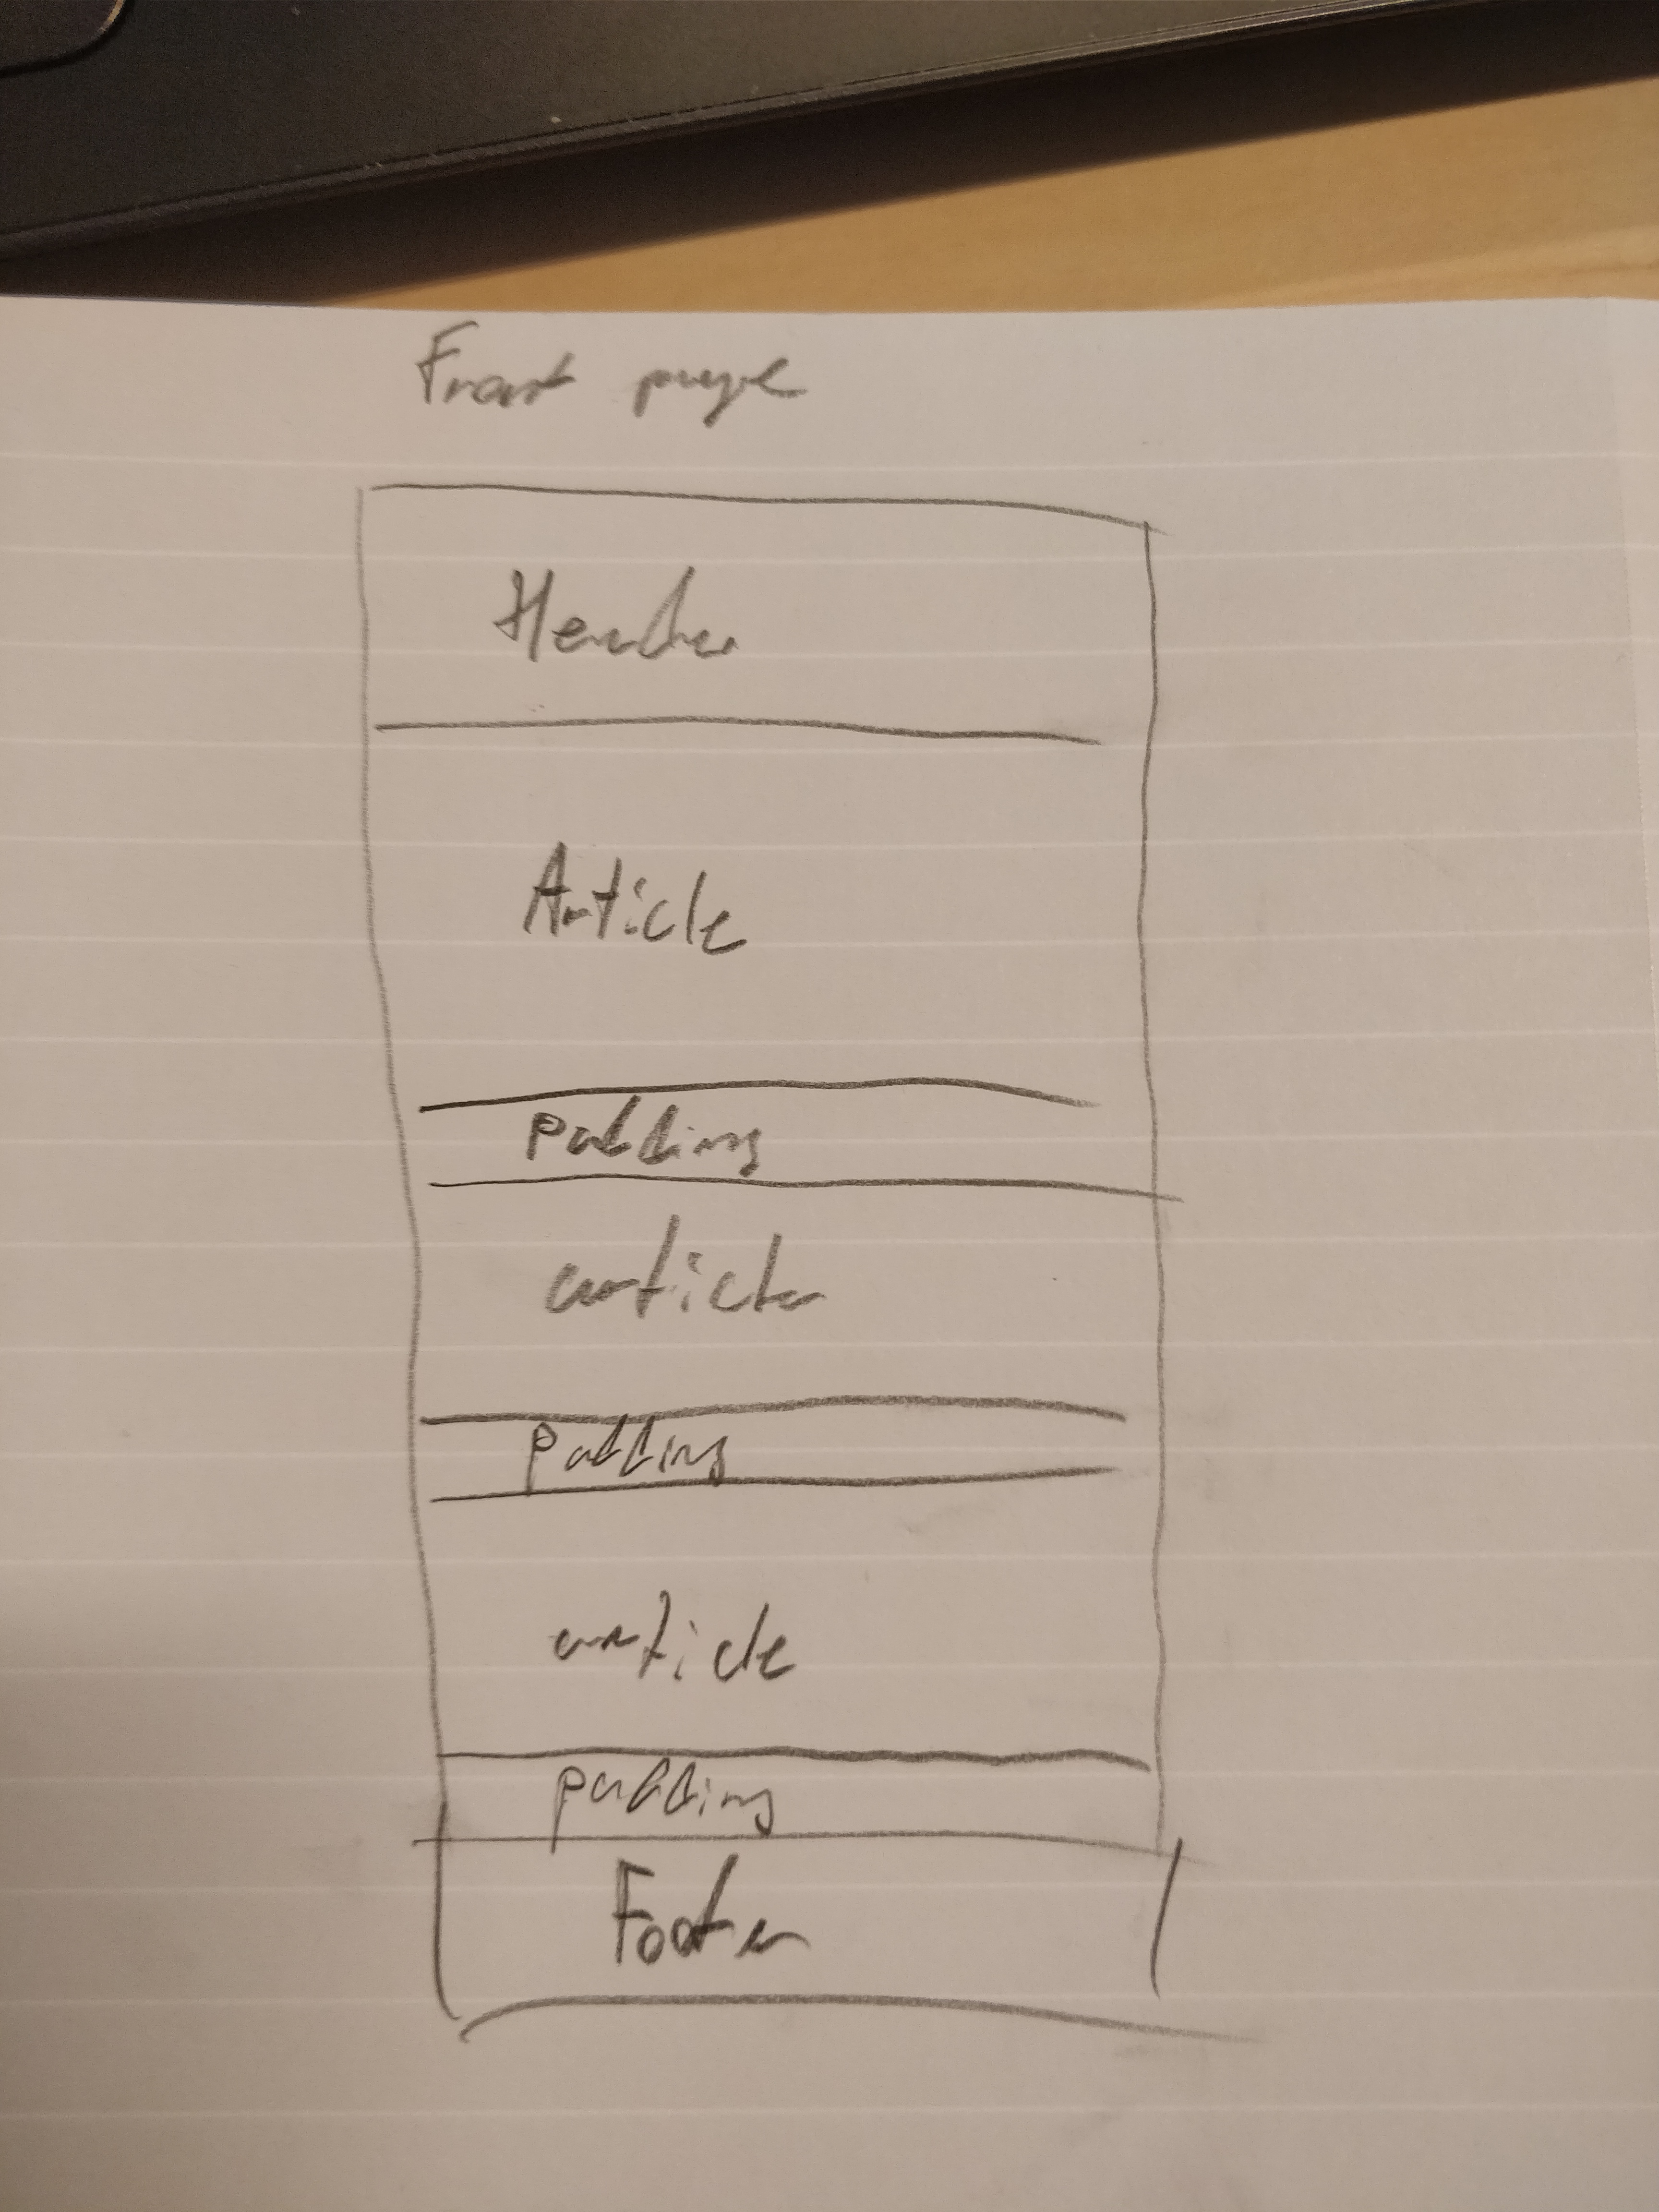 Front page
Header
Article
padding
article
padding
article
padding
Footer